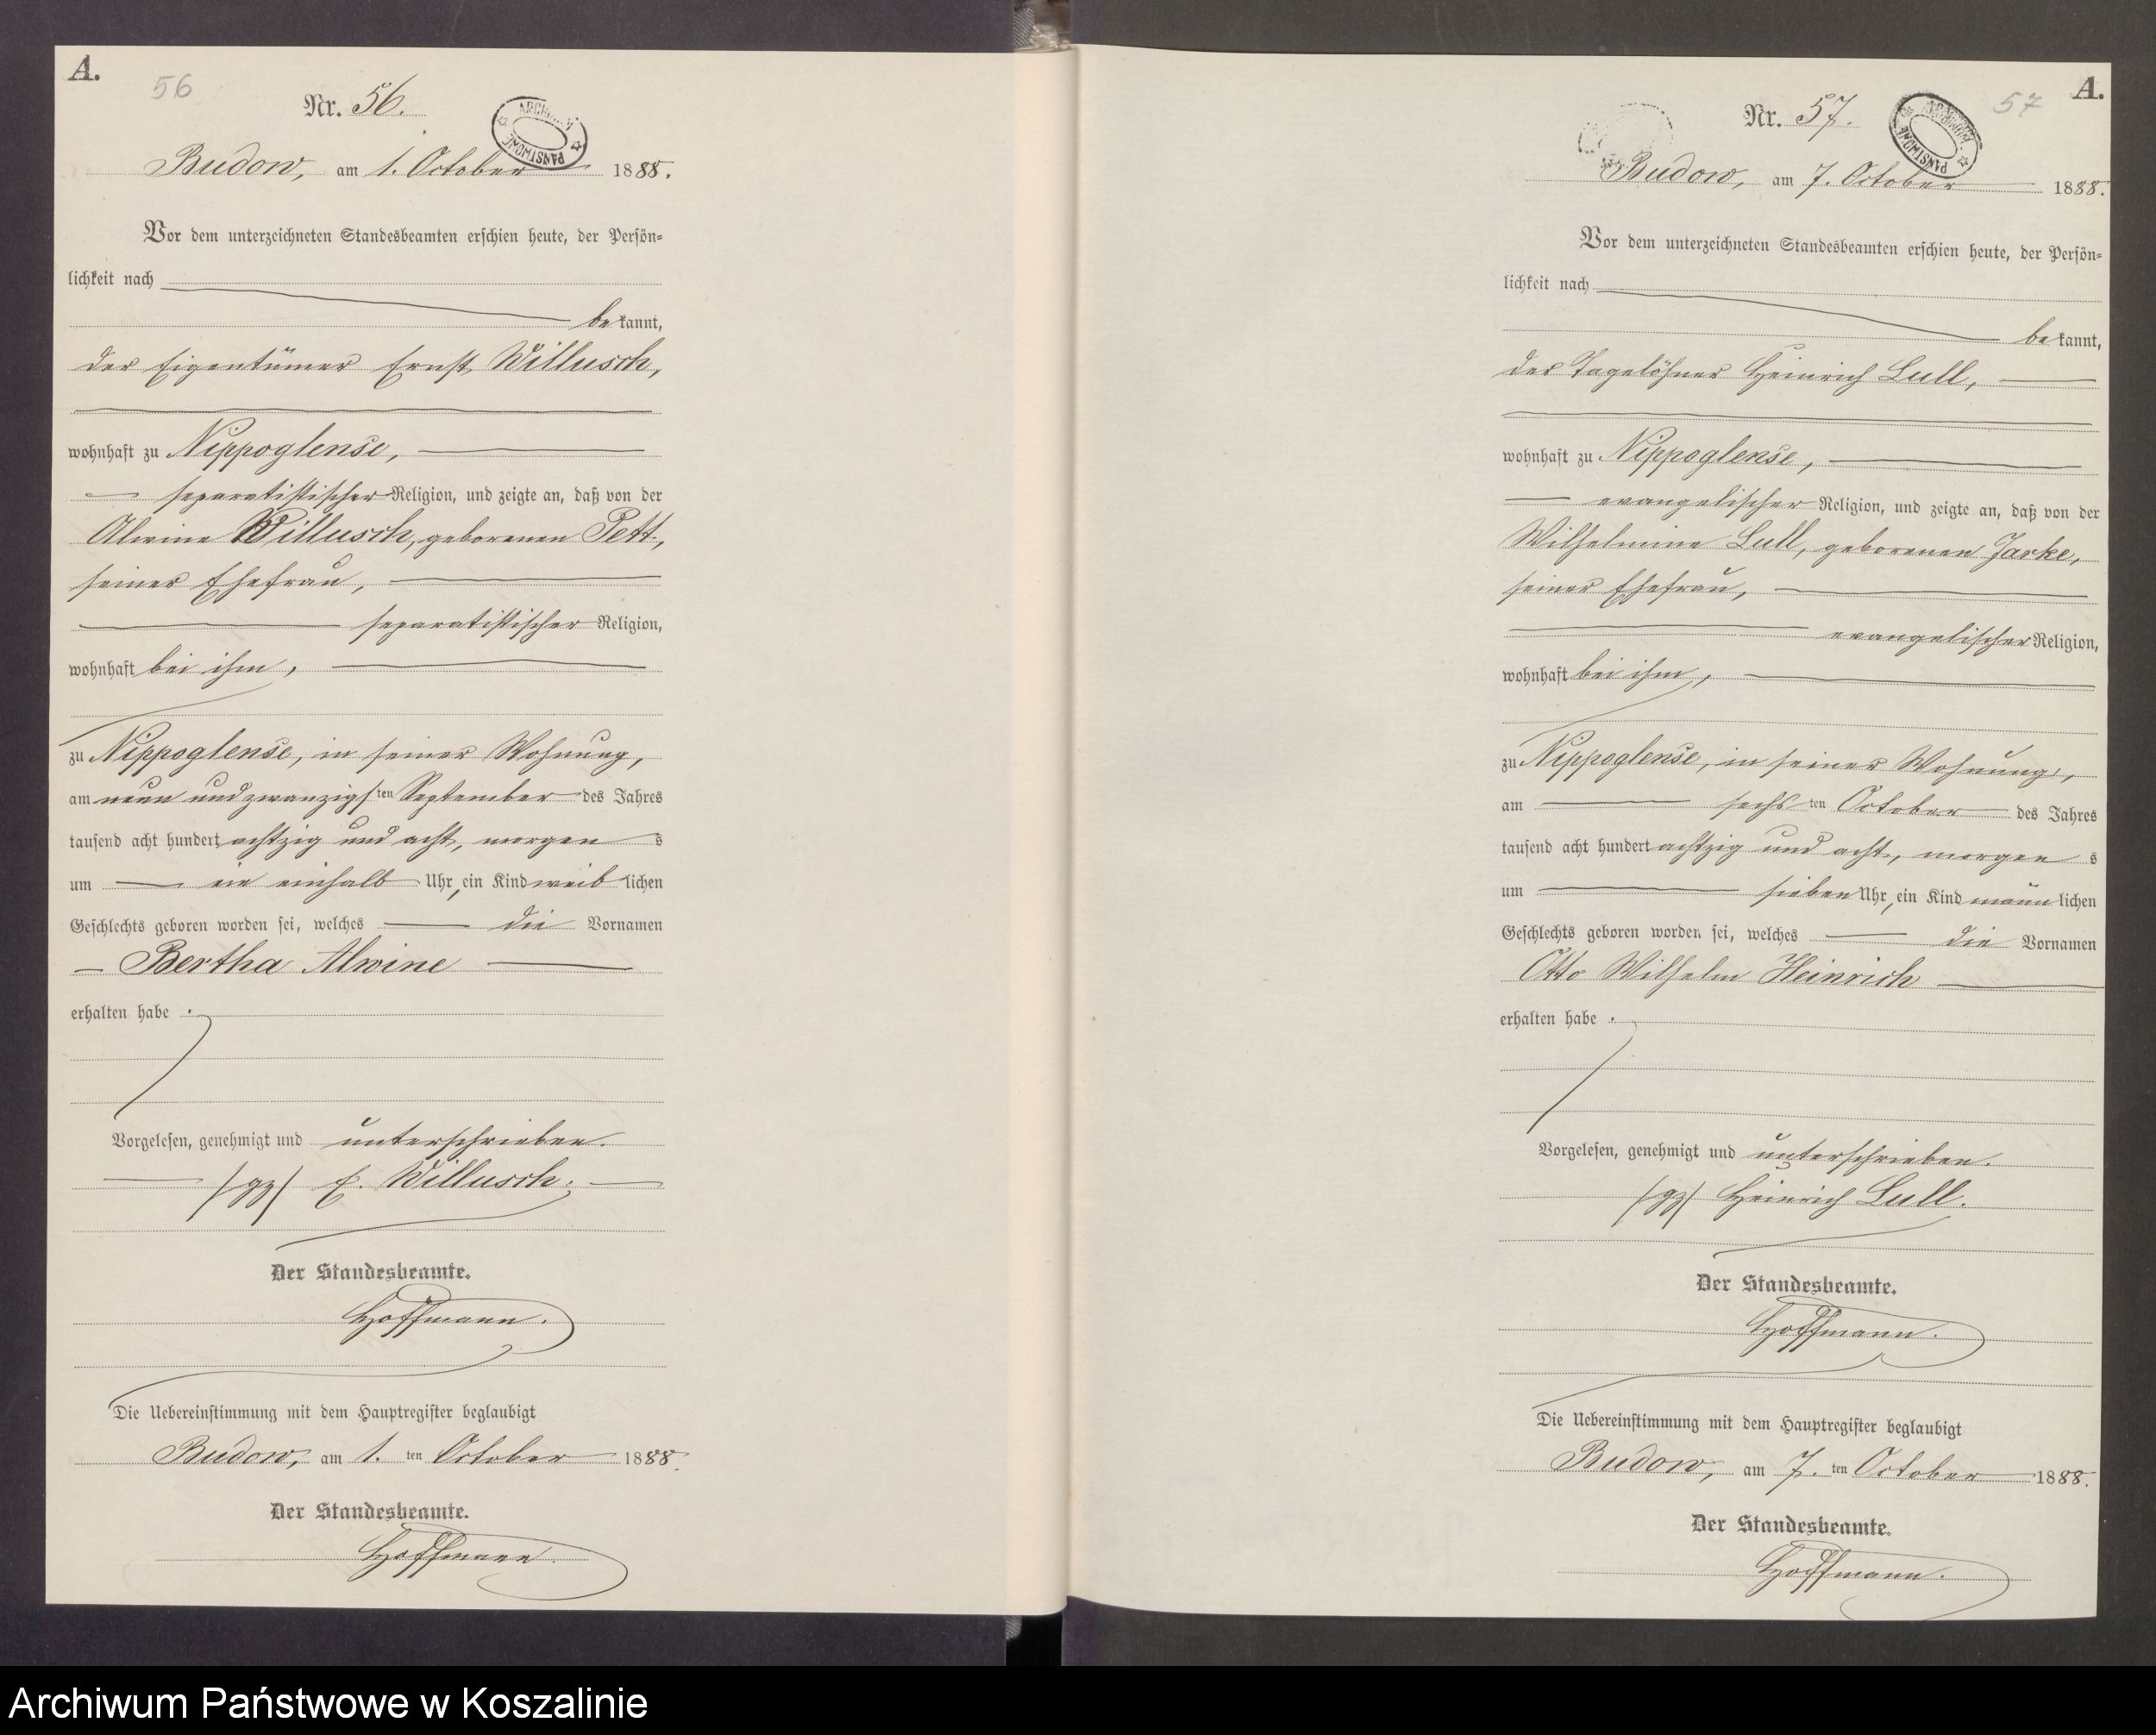 A.
56
Nr. 56.
ARCHIWUM PAŃSTWOWE
Budow, am 1. October 1888.
Vor dem unterzeichneten Standesbeamten erschien heute, der Persön-
lichkeit nach
bekannt,
der Eigentümer Ernst Willusch,
wohnhaft zu Nippoglense,
separatistischer Religion, und zeigte an, daß von der
Alwine Willusch, geborenen Pett,
seiner Ehefrau,
separatistischer Religion,
wohnhaft bei ihm,
zu Nippoglense, in seiner Wohnung,
am neun und zwanzigsten September des Jahres
tausend acht hundert achtzig und acht, morgens
um ein einhalb Uhr, ein Kind weiblichen
Geschlechts geboren worden sei, welches die Vornamen
Bertha Alwine
erhalten habe.
Vorgelesen, genehmigt und unterschrieben.
/gz/ E. Willusch.
Der Standesbeamte.
Hoffmann.
Die Uebereinstimmung mit dem Hauptregister beglaubigt
Budow, am 1. ten October 1888.
Der Standesbeamte.
Hoffmann.
A.
57
Nr. 57.
ARCHIWUM PAŃSTWOWE
Budow, am 7. October 1888.
Vor dem unterzeichneten Standesbeamten erschien heute, der Persön-
lichkeit nach
bekannt,
der Tagelöhner Heinrich Lull,
wohnhaft zu Nippoglense,
evangelischer Religion, und zeigte an, daß von der
Wilhelmine Lull, geborenen Jarke,
seiner Ehefrau,
evangelischer Religion,
wohnhaft bei ihm,
zu Nippoglense, in seiner Wohnung,
am sechsten October des Jahres
tausend acht hundert achtzig und acht, morgens
um sieben Uhr, ein Kind männlichen
Geschlechts geboren worden sei, welches die Vornamen
Otto Wilhelm Heinrich
erhalten habe.
Vorgelesen, genehmigt und unterschrieben.
/gz/ Heinrich Lull.
Der Standesbeamte.
Hoffmann.
Die Uebereinstimmung mit dem Hauptregister beglaubigt
Budow, am 7. ten October 1888.
Der Standesbeamte.
Hoffmann.
Archiwum Państwowe w Koszalinie